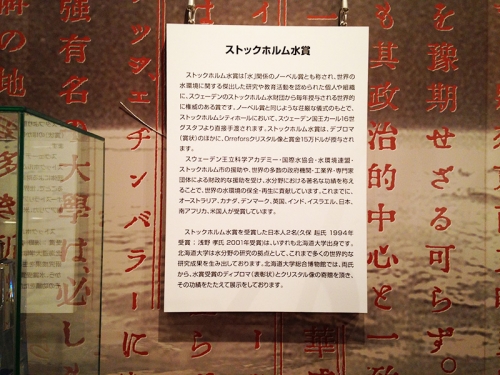 ストックホルム水賞
ストックホルム水賞は「水」関係のノーベル賞とも称され、世界の
水環境に関する傑出した研究や教育活動を認められた個人や組織
に、スウェーデンのストックホルム水財団から毎年授与される世界的
に権威のある賞です。ノーベル賞と同じような荘厳な儀式のもとで、
ストックホルムシティホールにおいて、スウェーデン国王カール16世
グスタフより直接手渡されます。ストックホルム水賞は、デプロマ
(賞状)のほかに、Orreforsクリスタル像と賞金15万ドルが授与され
ます。
スウェーデン王立科学アカデミー・国際水協会・水環境連盟・
ストックホルム市の援助や、世界の多数の政府機関・工業界・専門家
団体による財政的な援助を受け、水分野における著名な功績を称え
ることで、世界の水環境の保全・再生に貢献しています。これまでに、
オーストラリア、カナダ、デンマーク、英国、インド、イスラエル、日本、
南アフリカ、米国人が受賞しています。
ストックホルム水賞を受賞した日本人2名(久保 赳氏 1994年
受賞：浅野 孝氏 2001年受賞)は、いずれも北海道大学出身です。
北海道大学は水分野の研究の拠点として、これまで多くの世界的な
研究成果を生み出しております。北海道大学総合博物館では、両氏
から、水賞受賞のディプロマ(表彰状)とクリスタル像の寄贈を頂き、
その功績をたたえて展示をしております。
を豫期せざる可らず
其政治的中心と一
ヂンバラーに
強有名の大學は必し
の地